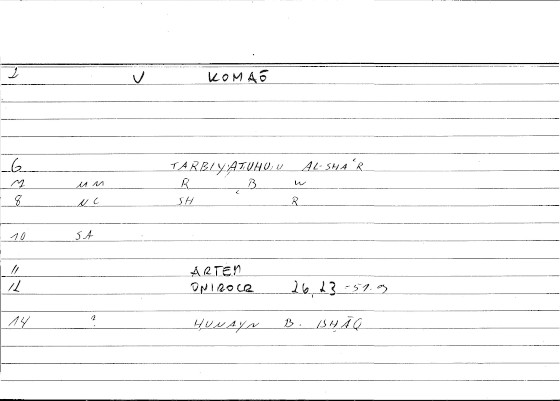 1 V KOMAŌ
6 TARBIYATUHŪ AL-SHAʿR
7 MM R B W
8 NC SH ʿ R
10 SA
11 ARTEM
12 ONIROCR 26,23
14 ? ḤUNAYN B. ISḤĀQ